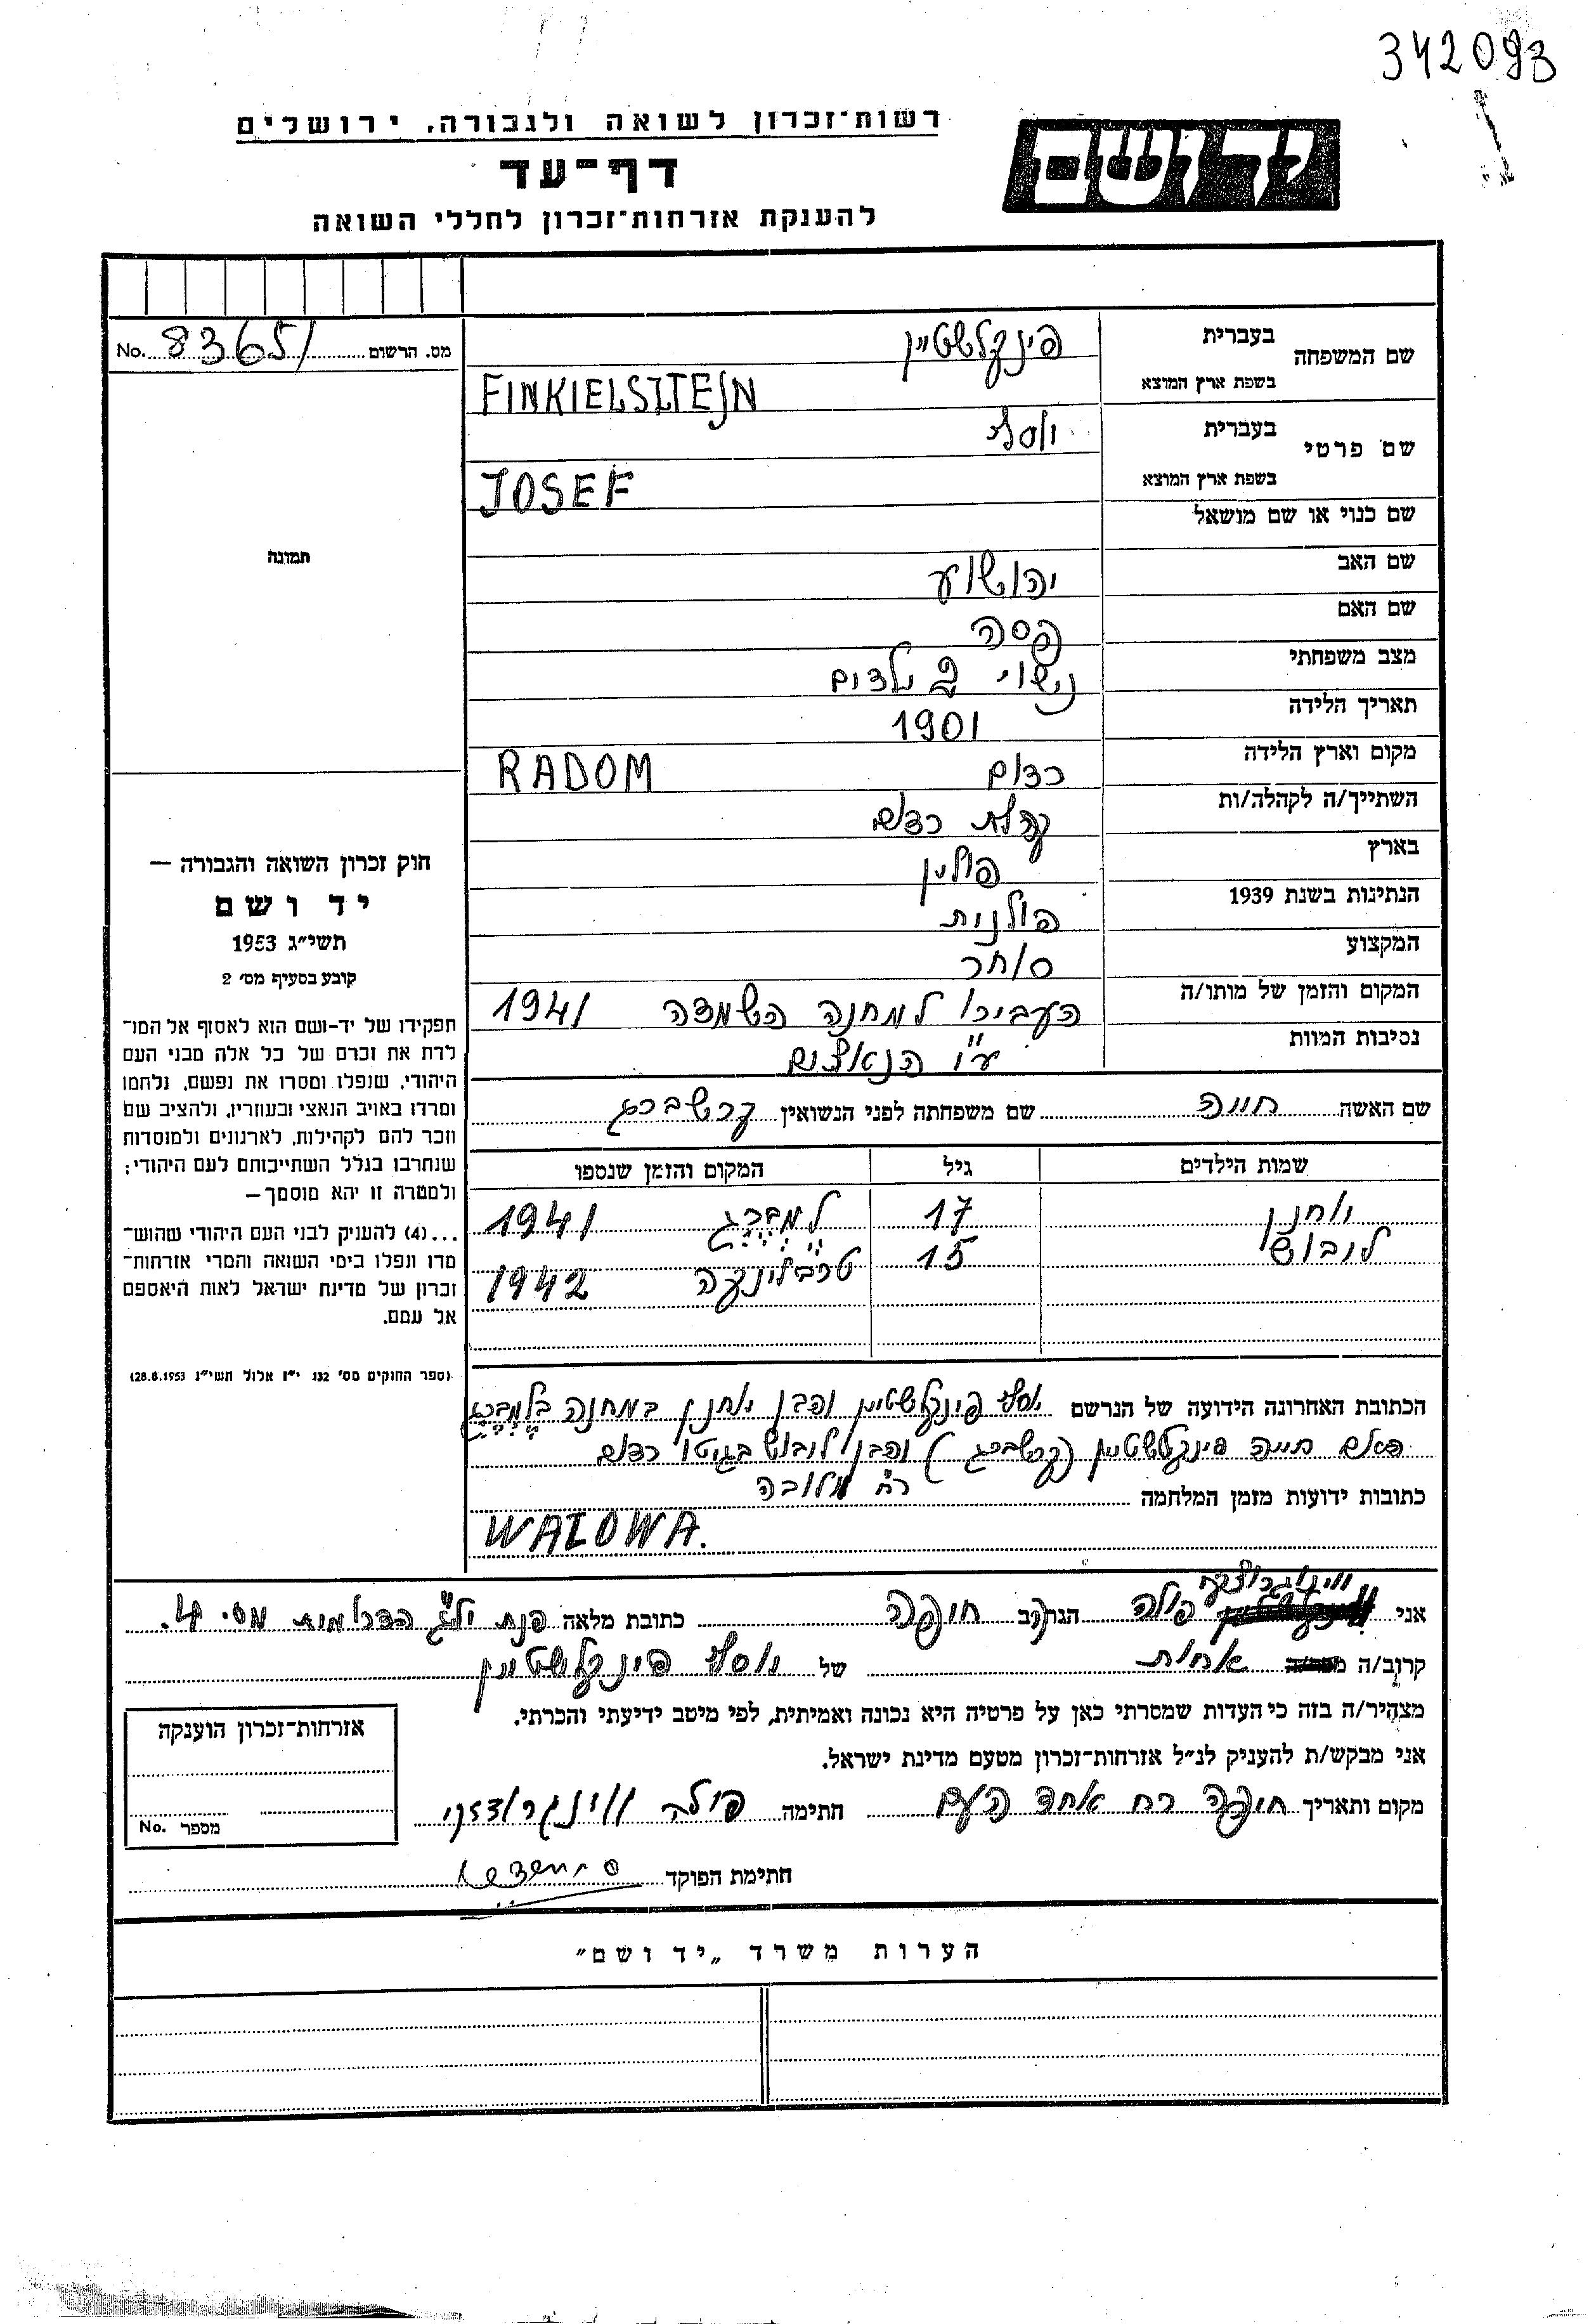 342093
רשות־זכרון לשואה ולגבורה, ירושלים
דף־עד
להענקת אזרחות־זכרון לחללי השואה
יד ושם
מס. הרשום 83651 No.
שם המשפחה
בעברית פינקלשטיין
בשפת ארץ המוצא FINKIELSZTEJN
שם פרטי
בעברית יוסף
בשפת ארץ המוצא JOSEF
שם כנוי או שם מושאל
שם האב יהושוע
שם האם פסה
מצב משפחתי נישוי 2 ילדים
תאריך הלידה 1901
מקום וארץ הלידה רדום RADOM
השתייך/ה לקהלה/ות קהלת רדום
בארץ פולין
הנתינות בשנת 1939 פולנית
המקצוע סוחר
המקום והזמן של מותו/ה העבירו למחנה השמדה 1941
נסיבות המוות ע"י הנאצים
תמונה
חוק זכרון השואה והגבורה —
יד ושם
תשי״ג 1953
קובע בסעיף מס׳ 2
תפקידו של יד-ושם הוא לאסוף אל המו־
לדת את זכרם של כל אלה מבני העם
היהודי, שנפלו ומסרו את נפשם, נלחמו
ומרדו באויב הנאצי ובעוזריו, ולהציב שם
וזכר להם לקהילות, לארגונים ולמוסדות
שנחרבו בגלל השתייכותם לעם היהודי;
ולמטרה זו יהא מוסמך—
...(4) להעניק לבני העם היהודי שהוש־
מדו ונפלו בימי השואה והמרי אזרחות־
זכרון של מדינת ישראל לאות היאספם
אל עמם.
(ספר החוקים מס׳ 132 י״ז אלול תשי״ג 28.8.1953)
שם האשה חייה שם משפחתה לפני הנשואין קרשברג
שמות הילדים גיל המקום והזמן שנספו
יוחנן 17 למברג 1941
לובוש 15 טרבלינקה 1942
הכתובת האחרונה הידועה של הנרשם יוסף פינקלשטיין והבן יוחנן במחנה בלמברג
האם חייה פינקלשטיין (קרשברג) והבן לובוש בגיטו רדום
כתובות ידועות מזמן המלחמה רח' ולובה
WALOWA.
אני וינוגרודצקי פולה הגר/ב חיפה כתובת מלאה פנת יל"ג הדרומית מס. 4.
קרוב/ה אחות של יוסף פינקלשטיין
מצהיר/ה בזה כי העדות שמסרתי כאן על פרטיה היא נכונה ואמיתית, לפי מיטב ידיעתי והכרתי.
אני מבקש/ת להעניק לנ״ל אזרחות־זכרון מטעם מדינת ישראל.
מקום ותאריך חיפה רח אחד העם חתימה פולה
חתימת הפוקד
אזרחות־זכרון הוענקה
מספר No.
הערות משרד „יד ושם״